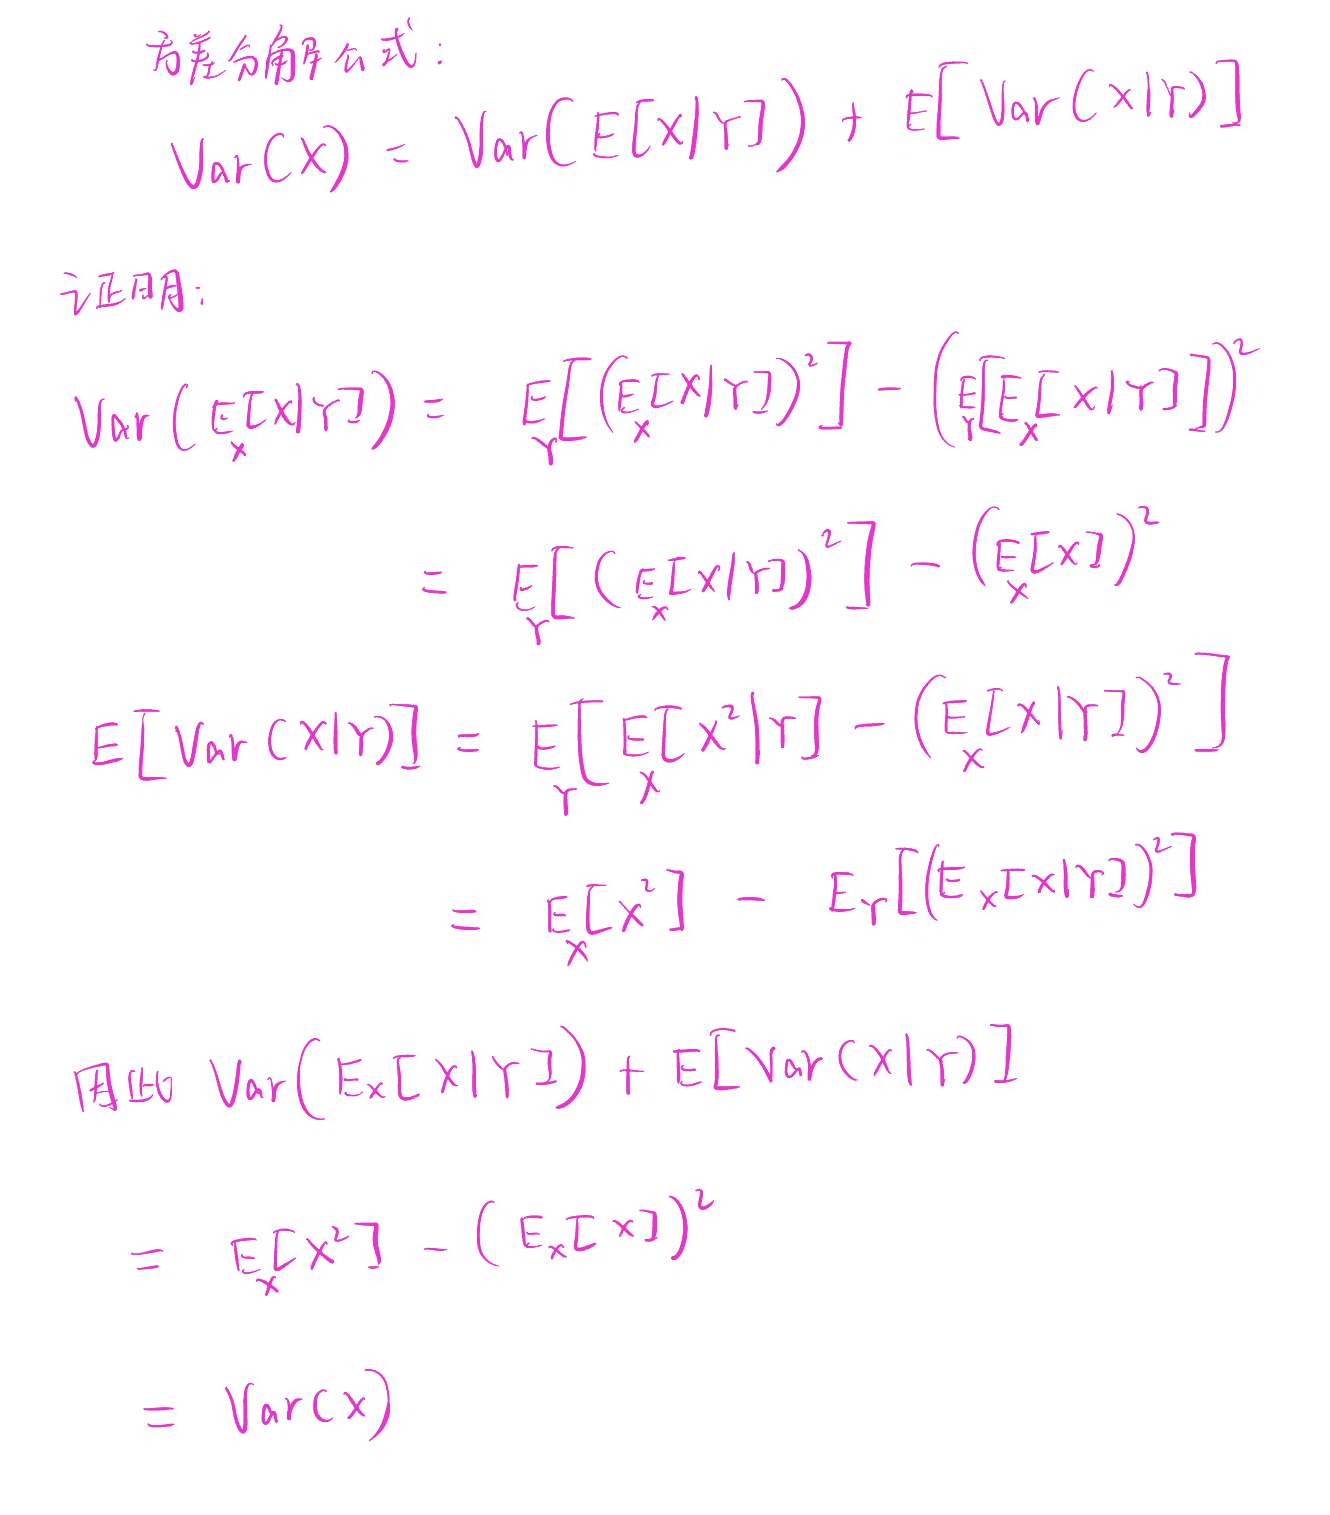 方差分解公式:
Var(X) = Var(E[X|Y]) + E[Var(X|Y)]
证明:
Var(E_X[X|Y]) = E_Y[(E_X[X|Y])²] - (E_Y[E_X[X|Y]])²
= E_Y[(E_X[X|Y])²] - (E_X[X])²
E[Var(X|Y)] = E_Y[E_X[X²|Y] - (E_X[X|Y])²]
= E_X[X²] - E_Y[(E_X[X|Y])²]
因此 Var(E_X[X|Y]) + E[Var(X|Y)]
= E_X[X²] - (E_X[X])²
= Var(X)